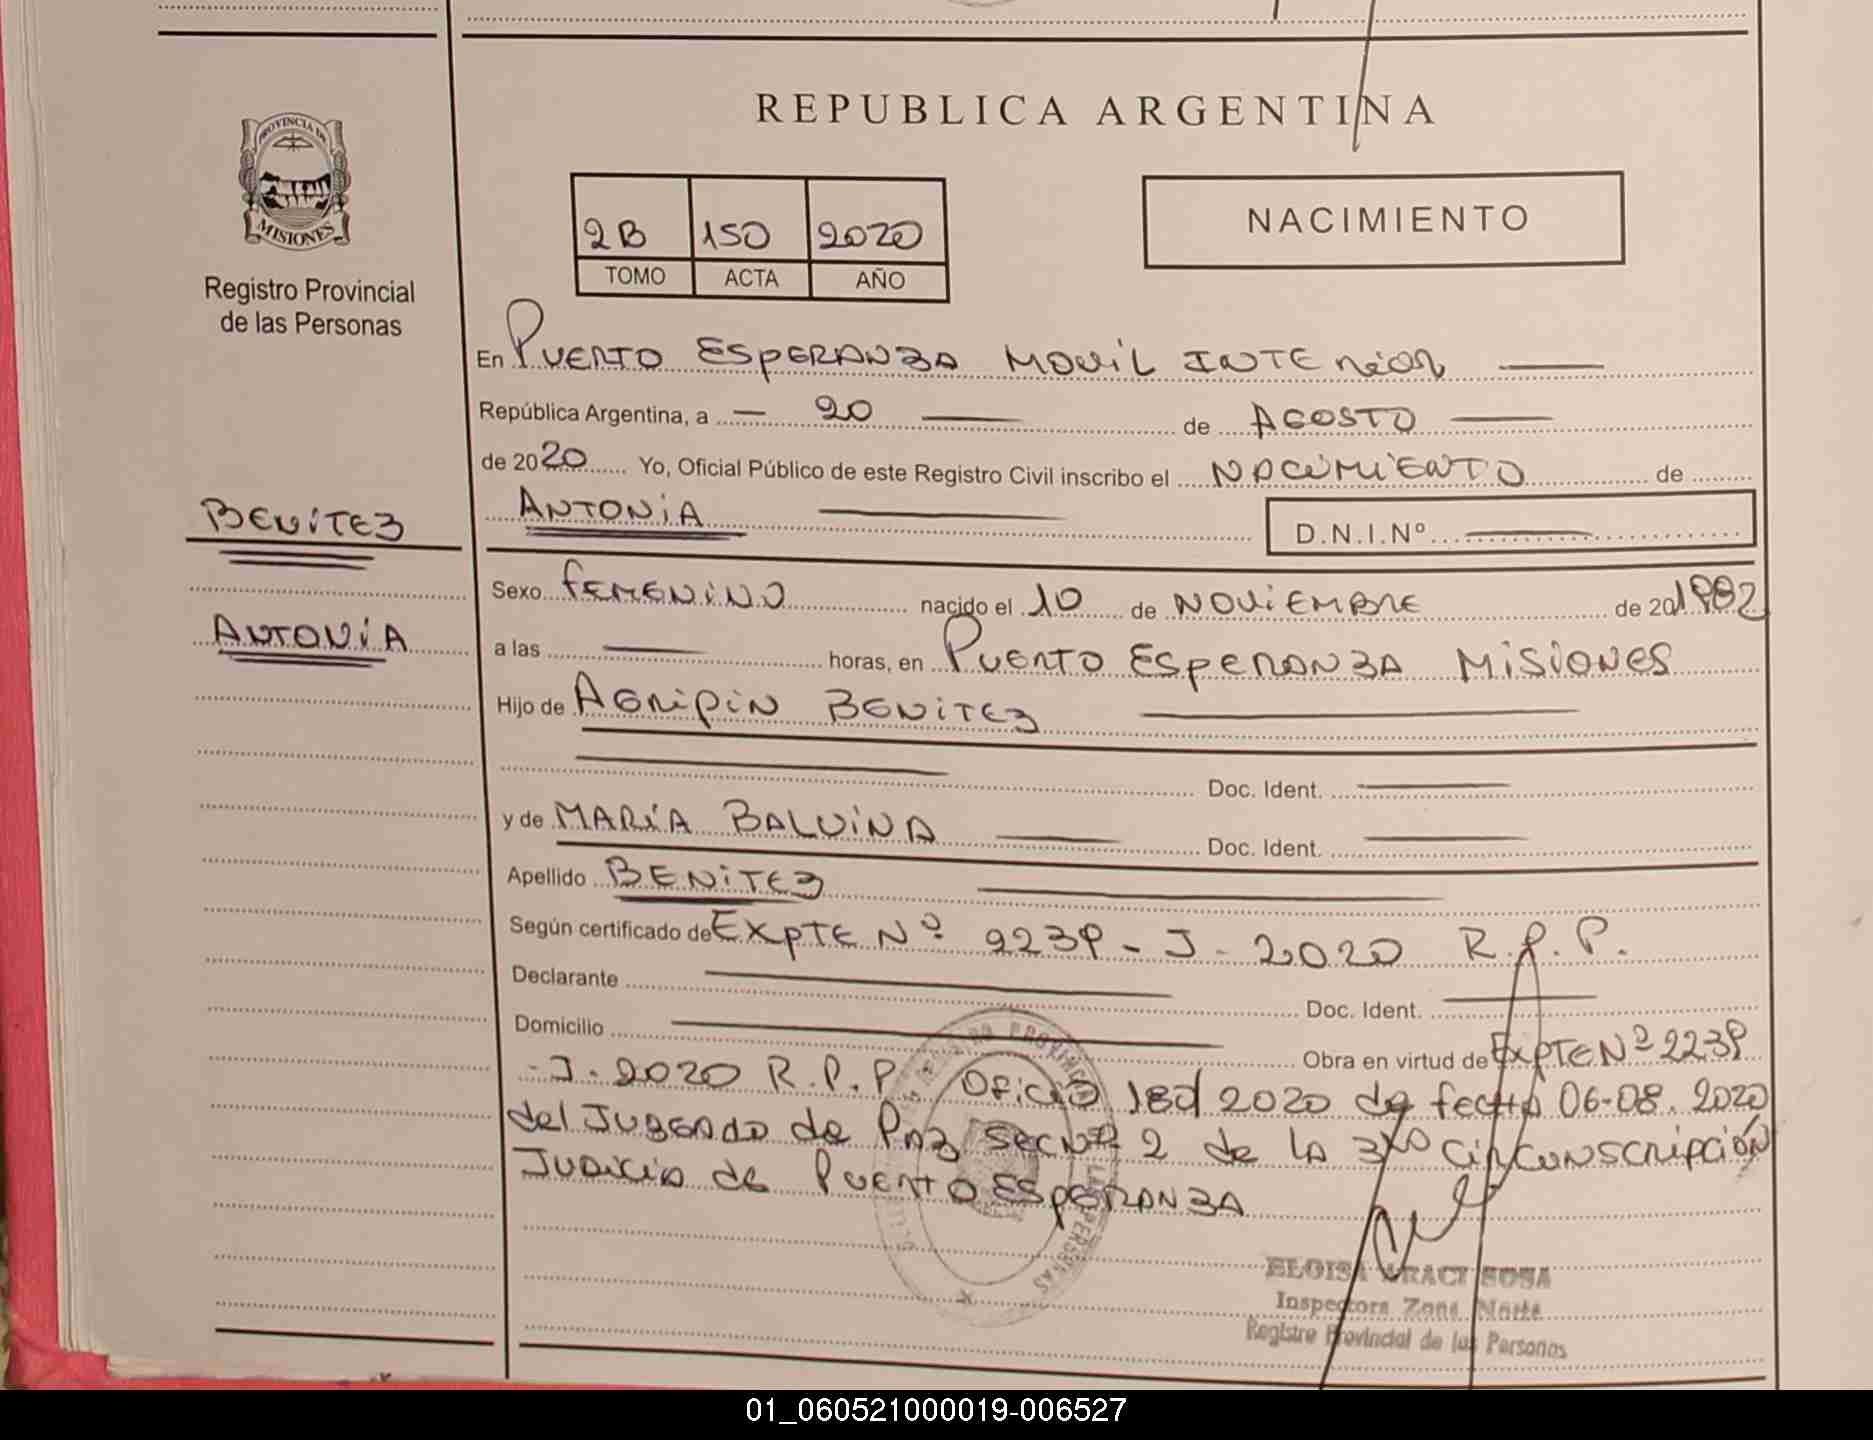 REPUBLICA ARGENTINA
PROVINCIA DE
MISIONES
Registro Provincial
de las Personas
2B 150 2020
TOMO ACTA AÑO
NACIMIENTO
En PUERTO ESPERANZA MOVIL INTERIOR
República Argentina, a 20 de AGOSTO
de 2020 Yo, Oficial Público de este Registro Civil inscribo el NACIMIENTO de
BENITEZ
ANTONIA
ANTONIA D.N.I.Nº
Sexo FEMENINO nacido el 10 de NOVIEMBRE de 20 1982
a las horas, en PUERTO ESPERANZA MISIONES
Hijo de AGRIPIN BENITEZ
Doc. Ident.
y de MARÍA BALVINA Doc. Ident.
Apellido BENITEZ
Según certificado de EXPTE Nº 2239 - J - 2020 R.P.P.
Declarante Doc. Ident.
Domicilio Obra en virtud de EXPTE Nº 2239
- J - 2020 R.P.P. OFICIO 2020 de fecha 06-08-2020
del JUZGADO de PAZ 2 de LA 3 CIRCUNSCRIPCIÓN
JUDICIA de PUERTO ESPERANZA
ELOISA ARACI SOSA
Inspectora Zona Norte
Registro Provincial de las Personas
01_060521000019-006527